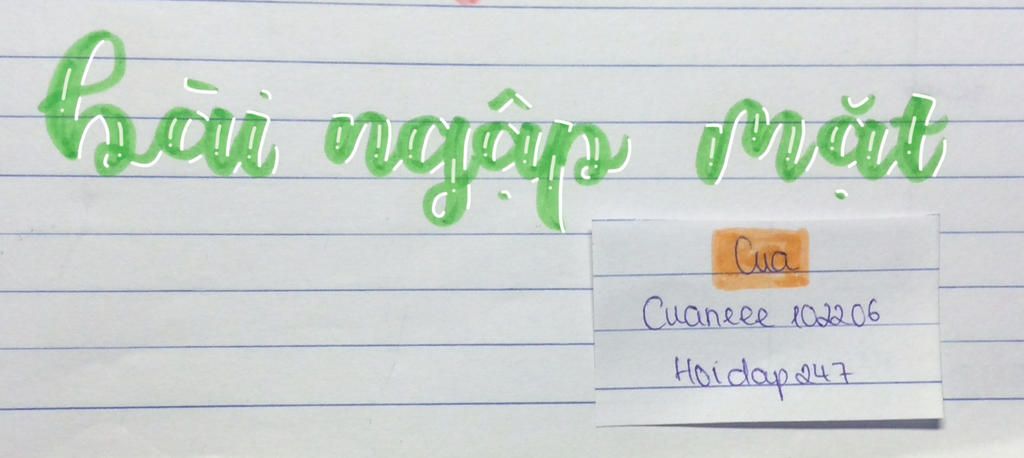 bài ngập mặt
Cua
Cuaneee 102206
Hoidap247